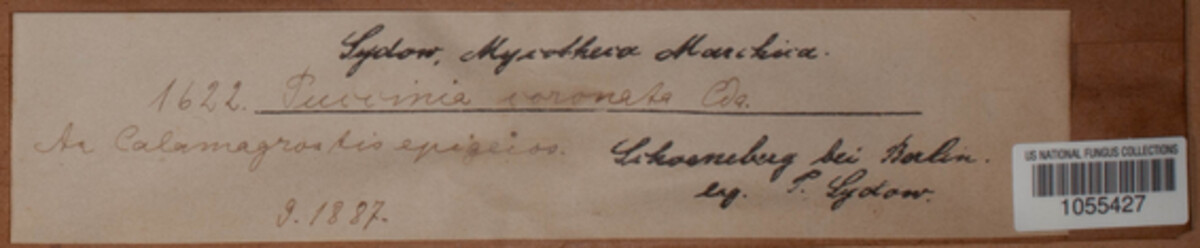 Sydow, Mycotheca Marchica.
1622. Puccinia coronata Cda.
An Calamagrostis epigeios.
Schoeneberg bei Berlin.
leg. P. Sydow.
9. 1887.
US NATIONAL FUNGUS COLLECTIONS
1055427